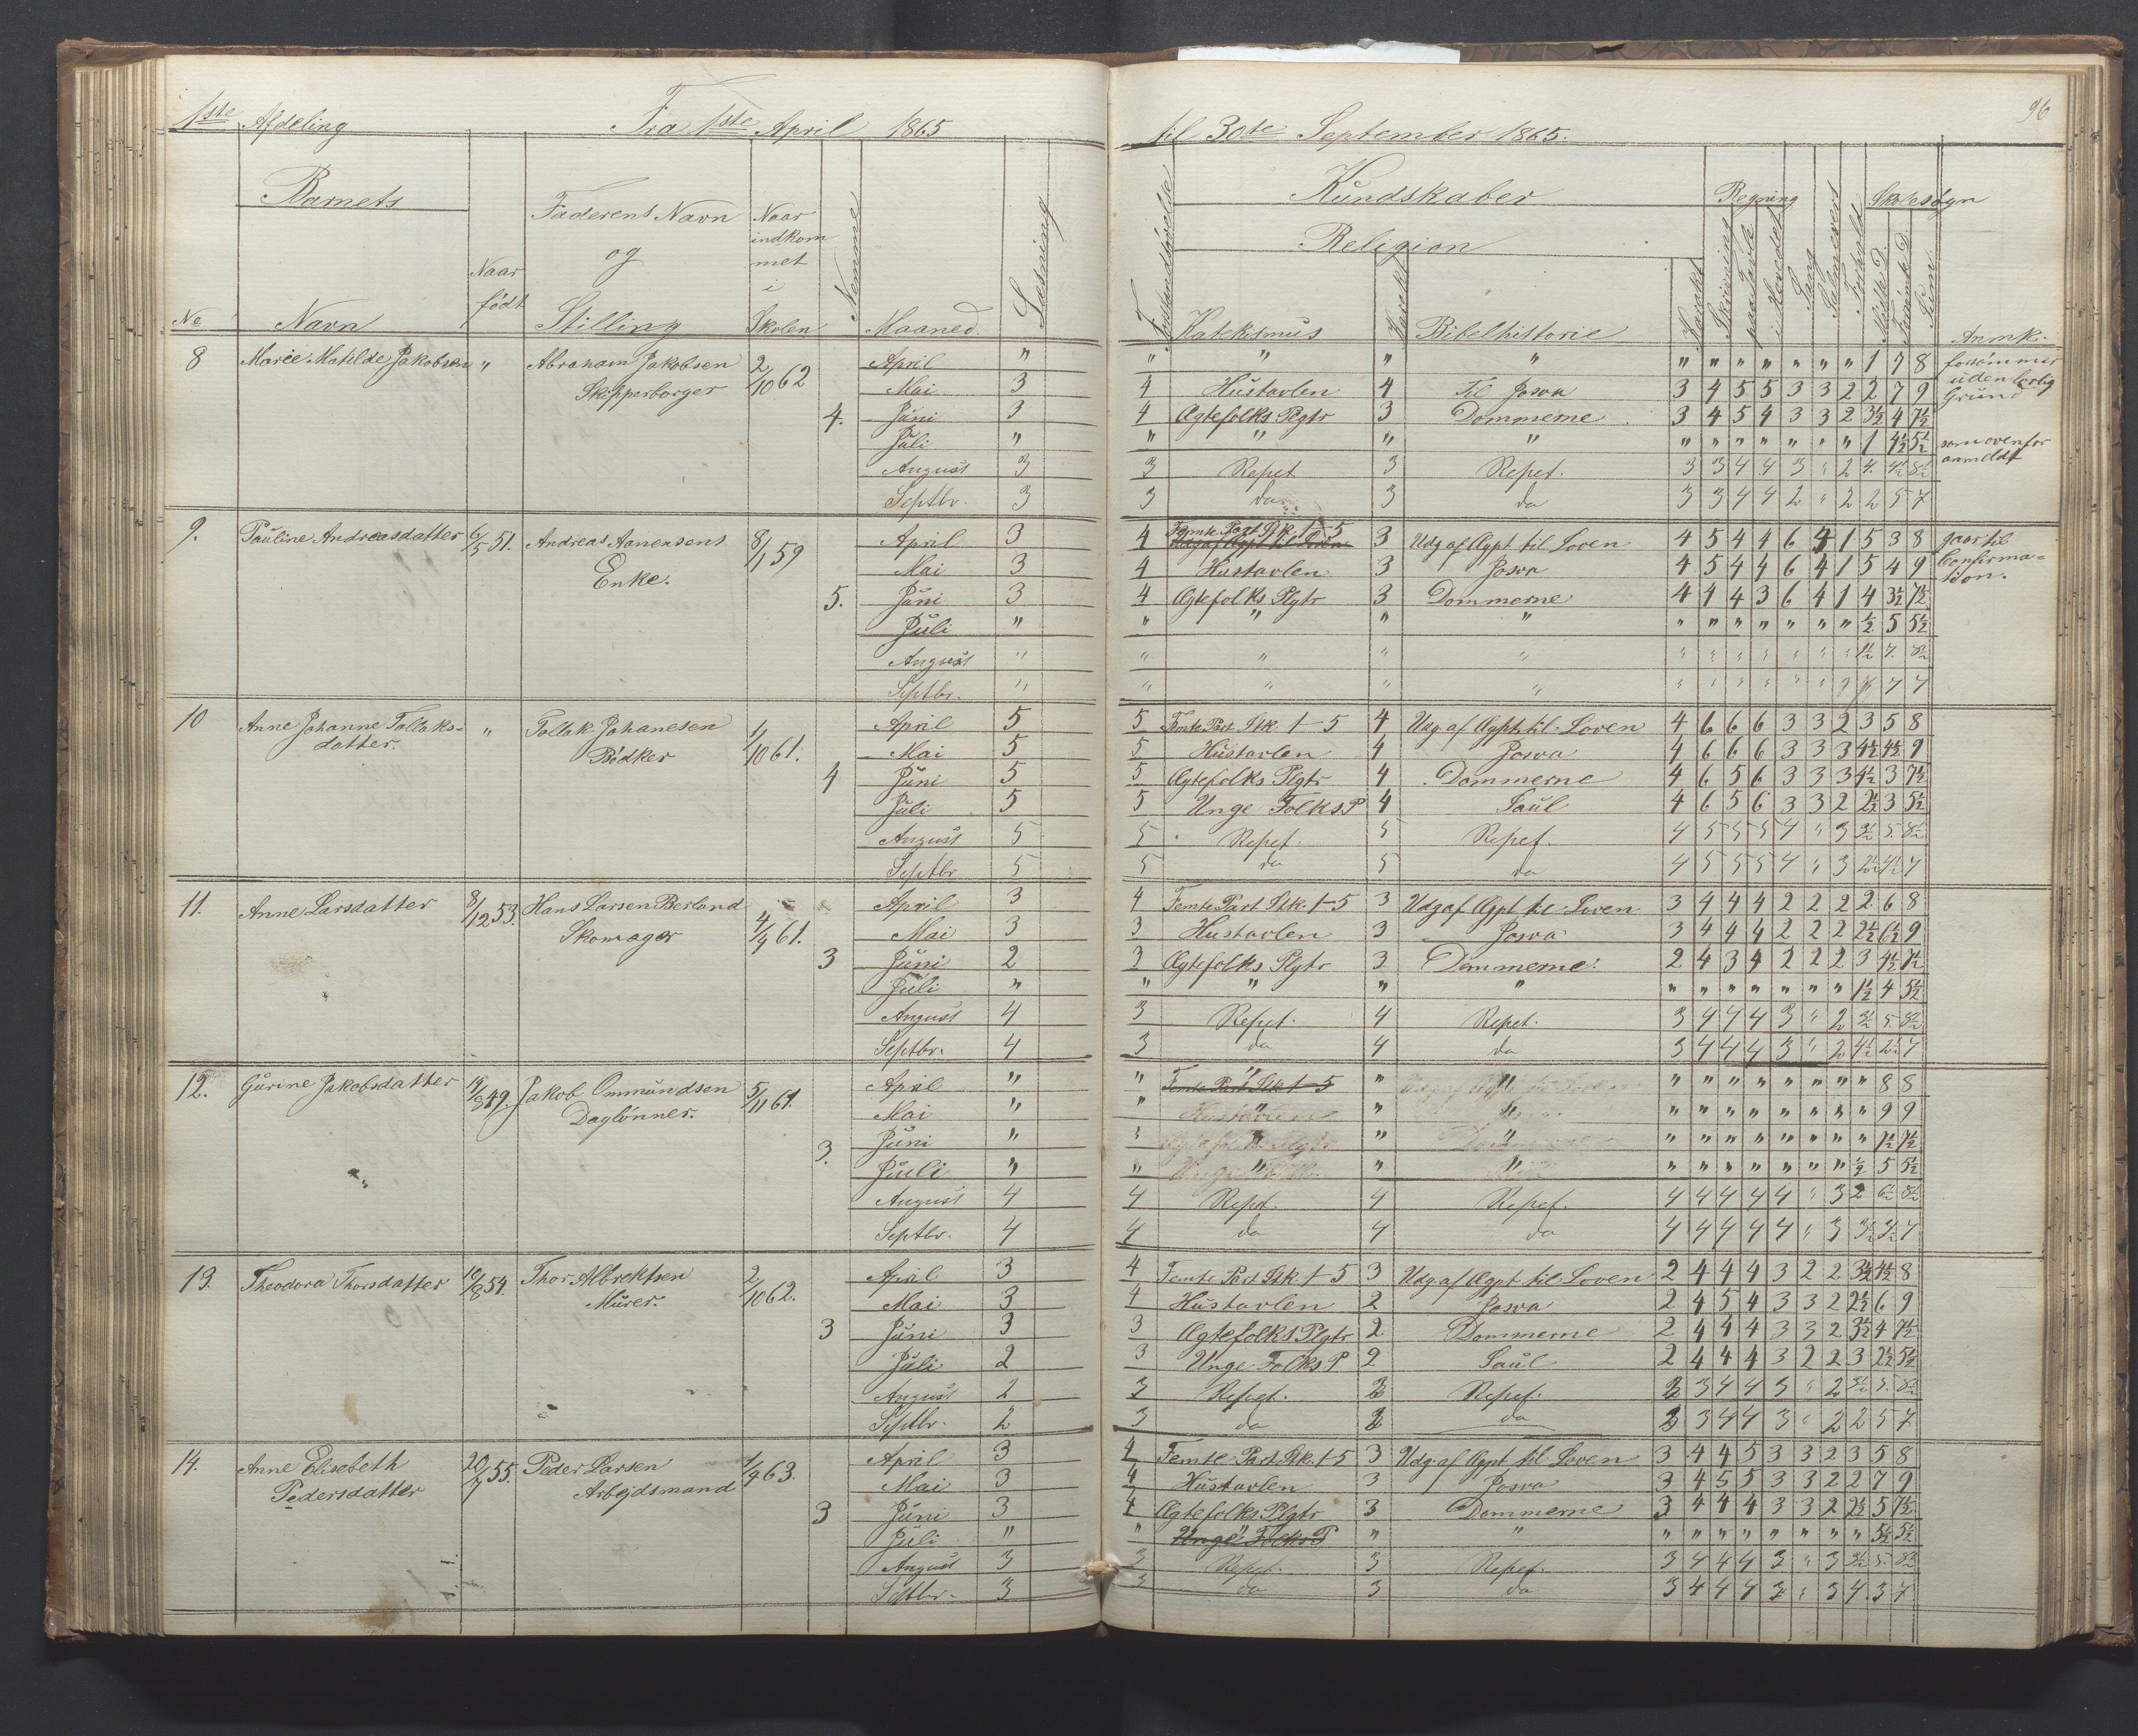 1ste Afdeling Fra 1ste April 1865
Barnets
Faderens Navn Naar
indkom
og met
Naar i
født Nemme Læsning
No Navn Stilling Skolen Maaned.
8 Marie Matilde Jakobsen " Abraham Jakobsen 2/10 62 April "
Skipperborger Mai 3
4. Juni 3
Juli "
August 3
Septbr. 3
9. Pauline Andreasdatter 6/5 51. Andreas Aanensens 8/1 59 April 3
Enke. Mai 3
5. Juni 3
Juli "
August "
Septbr. "
10 Anne Johanne Tollaks= " Tollak Johanesen 1/10 61. April 5
datter. Bødker Mai 5
4 Juni 5
Juli 5
August 5
Septbr 5
11. Anne Larsdatter 8/12 53. Hans Larsen Berland 4/4 61. April 3
Skomager Mai 3
3 Juni 2
Juli "
August 4
Septbr. 4
12. Gurine Jakobsdatter Jakob Ommundsen 5/11 61. April "
Daglønner. Mai "
3. Juni "
Juuli "
August 4
Septbr. 4
13. Theodora Thorsdatter 10/8 54. Thor Albrektsen 2/10 62. April 3
Murer. Mai 3
3 Juni 3
Juli 2
August 2
Septbr. 2
14. Anne Elisebeth 20/7 55. Peder Larsen 1/9 63. April 3
Pedersdatter Arbejdsmand Mai 3
3 Juni 3
Juli "
August 3
Septbr. 3
96
til 30te September 1865.
Kundskaber Regning Skolesøgn
Religion
Forstandsøvelse Katekismus Karakt Bibelhistorie Karakt Skrivning paa Tavle i Hovedet Sang Salmevers Forhold Mødte D. Forsømte D. Anmk.
" " " " " " " " " " " 1 7 8 forsømmer
4 Hustavlen 4 Til Josva 3 4 5 5 3 3 2 2 7 9 uden lovlig
4 Ægtefolks Plgtr 3 Dommerne 3 4 5 4 3 3 2 3½ 4 7½ Grund
" " " " " " " " " " " 1 4½ 5½ som ovenfor
3 Repet 3 Repet. 3 3 4 4 3 " 2 4. 4½ 8½ anmeldt
3 do 3 do 3 3 4 4 2 " 2 2 5 7
4 Femte Part Stk. 1-5 3 Udg af Ægpt. til Loven 4 5 4 4 6 4 1 5 3 8 gaar til
4 Hustavlen 3 Josva 4 5 4 4 6 4 1 5 4 9 Confirma=
4 Ægtefolks Plgtr 3 Dommerne 4 4 4 3 6 4 1 4 3½ 7½ tion.
" " " " " " " " " " " ½ 5 5½
" " " " " " " " " " " 1½ 7. 8½
" " " " " " " " " " " " 7 7
5 Femte Part Stk. 1-5 4 Udg. af Ægpt. til Loven 4 6 6 6 3 3 2 3 5 8
5 Hustavlen 4 Josva 4 6 6 6 3 3 3 4½ 4½ 9
5 Ægtefolks Plgtr 4 Dommerne 4 6 5 6 3 3 3 4½ 3 7½
5 Unge Folks P 4 Saul 4 6 5 6 3 3 2 2½ 3 5½
5 Repet. 5 Repet. 4 5 5 5 4 " 3 3½ 5. 8½
5 do 5 do 4 5 5 5 4 " 3 2½ 4½ 7
4 Femte Part Stk. 1-5 3 Udg af Ægpt til Loven 3 4 4 4 2 2 2 2 6 8
3 Hustavlen 3 Josva 3 4 4 4 2 2 2 2½ 6½ 9
3 Ægtefolks Plgtr 3 Dommerne. 2 4 3 4 2 2 2 3 4½ 7½
" " " " " " " " " " " 1½ 4 5½
3 Repet. 4 Repet. 3 4 4 4 3 " 2 3½ 5. 8½
3 do 4 do 3 4 4 4 3 " 2 4½ 2½ 7
" Femte Part Stk 1-5 " " " " " " " " " " 8 8
" " " " " " " " " " " " 9 9
" " " " " " " " " " " " 7½ 7½
" " " " " " " " " " " ½ 5 5½
4 Repet. 4 Repet. 4 4 4 4 4 " 3 2 6½ 8½
4 do 4 do 4 4 4 4 4 " 3 3½ 3½ 7
4 Femte Part Stk. 1-5 3 Udg. af Ægpt. til Loven 2 4 4 4 3 2 2 3½ 4½ 8
4 Hustavlen 2 Josva 2 4 5 4 3 3 2 2½ 6 9
3 Ægtefolks Plgtr 2 Dommerne 2 4 4 4 3 3 2 3½ 4 7½
3 Unge Folks P 2 Saul 2 4 4 4 3 2 2 3 2½ 5½
3 Repet. 2 Repet. 2 3 4 4 3 " 2 3½ 5. 8½
3 do 2 do 2 3 4 4 3 " 2 2 5 7
4 Femte Part Stk. 1-5 3 Udg. af Ægpt til Loven 3 4 4 5 3 3 2 3 5 8
4 Hustavlen 3 Josva 3 4 5 5 3 3 2 2 7 9
4 Ægtefolks Plgtr 3 Dommerne 3 4 4 4 3 3 2 2½ 5 7½
" Unge Folks P " " " " " " " " " " 5½ 5½
3 Repet. 3 Repet. 3 4 4 4 3 " 3 3½ 5. 8½
3 do 3 do 3 4 4 4 3 " 3 4. 3 7